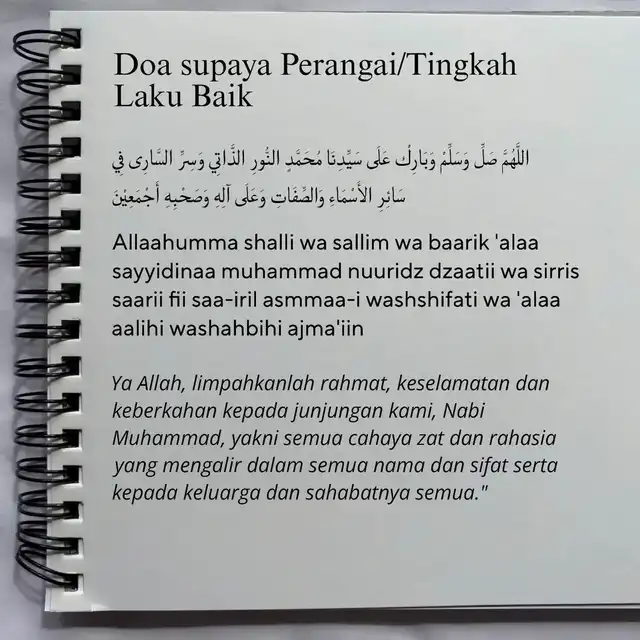 Doa supaya Perangai/Tingkah
Laku Baik
اللَّهُمَّ صَلِّ وَسَلِّمْ وَبَارِكْ عَلَى سَيِّدِنَا مُحَمَّدٍ النُّورِ الذَّاتِي وَسِرِّ السَّارِى فِي
سَائِرِ الأَسْمَاءِ وَالصِّفَاتِ وَعَلَى آلِهِ وَصَحْبِهِ أَجْمَعِيْنَ
Allaahumma shalli wa sallim wa baarik 'alaa
sayyidinaa muhammad nuuridz dzaatii wa sirris
saarii fii saa-iril asmmaa-i washshifati wa 'alaa
aalihi washahbihi ajma'iin
Ya Allah, limpahkanlah rahmat, keselamatan dan
keberkahan kepada junjungan kami, Nabi
Muhammad, yakni semua cahaya zat dan rahasia
yang mengalir dalam semua nama dan sifat serta
kepada keluarga dan sahabatnya semua."